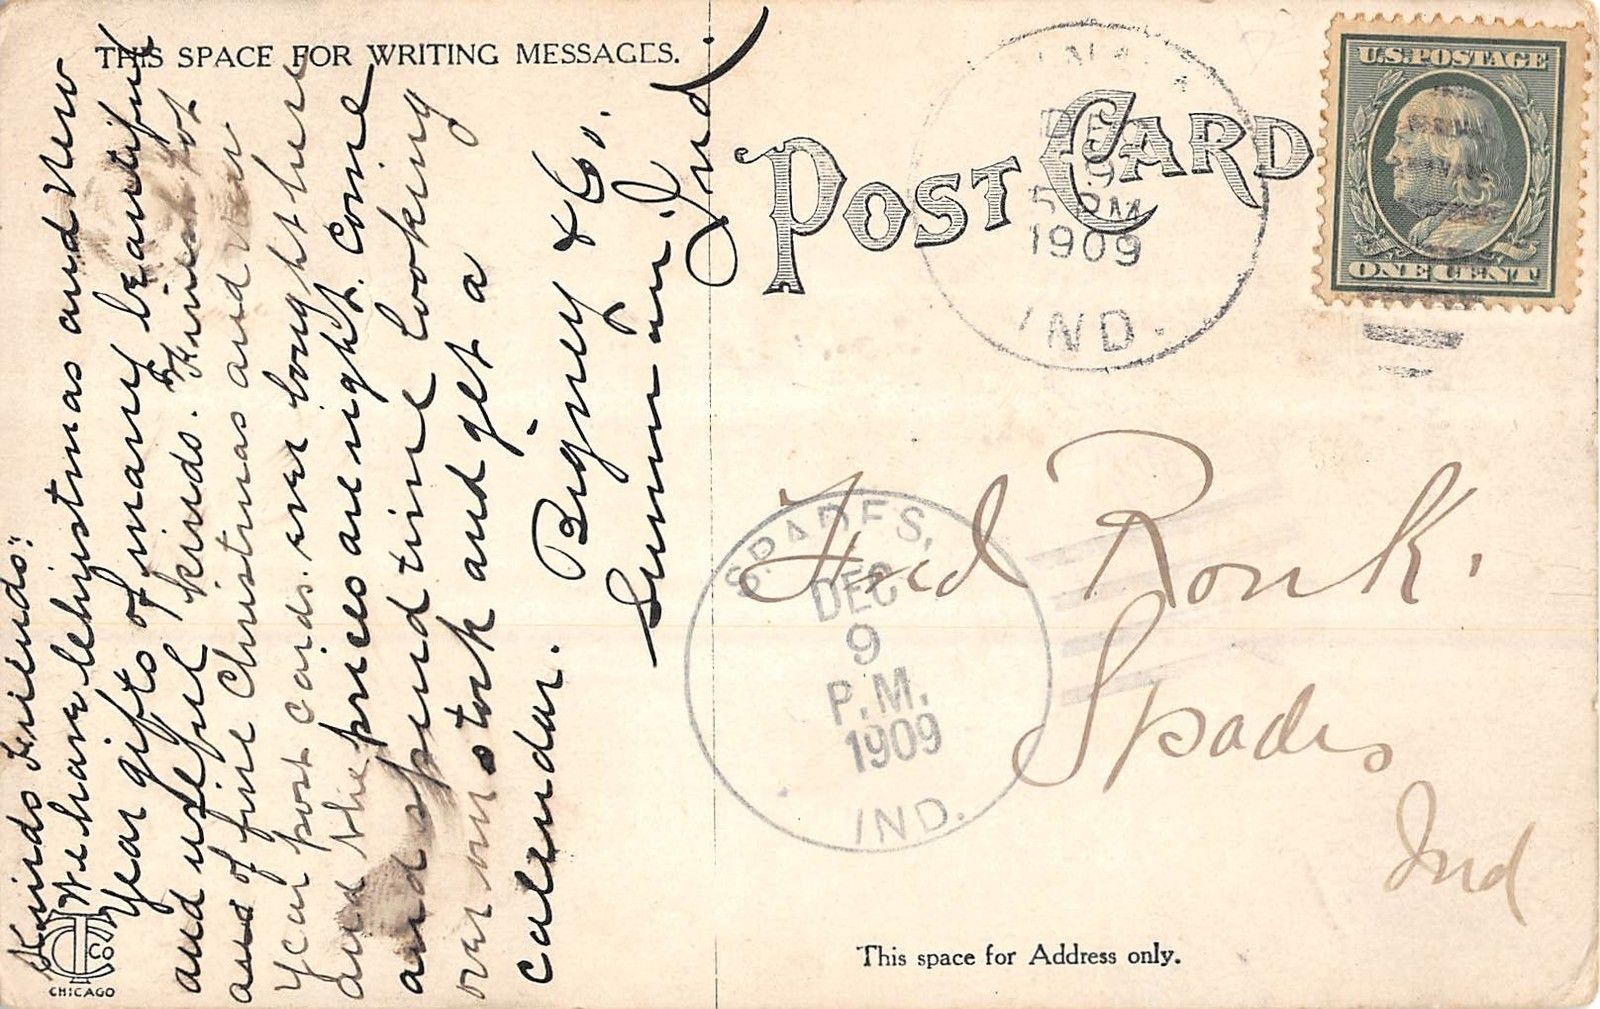 THIS SPACE FOR WRITING MESSAGES.
Kinds Friends:
We have Christmas and New
Year gifts of many beautiful
and useful kinds. Finest lot
and of fine Christmas and New
Year post cards ever bought here
and the prices are right. Come
and spend time looking
over our stock and get a
calendar. Bigney & Co.
Sunman, Ind.
CTCo
CHICAGO
POST CARD
DEC
9
5 PM
1909
IND.
U.S. POSTAGE
ONE CENT
SPADES,
DEC
9
P.M.
1909
IND.
Fred Ronk.
Spades
Ind
This space for Address only.